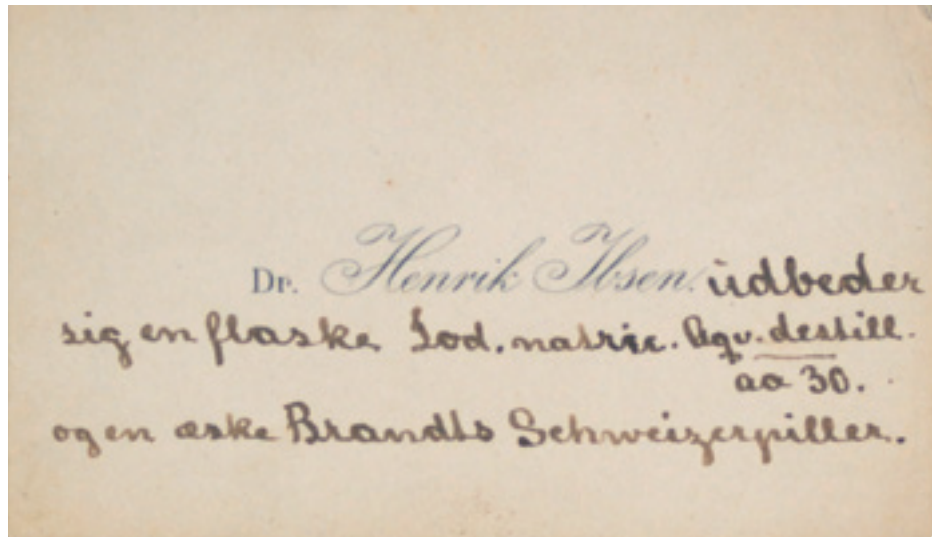 Dr. Henrik Ibsen. udbeder
sig en flaske Jod. natric. Aqv. destill.
aa 30.
og en æske Brandts Schweizerpiller.